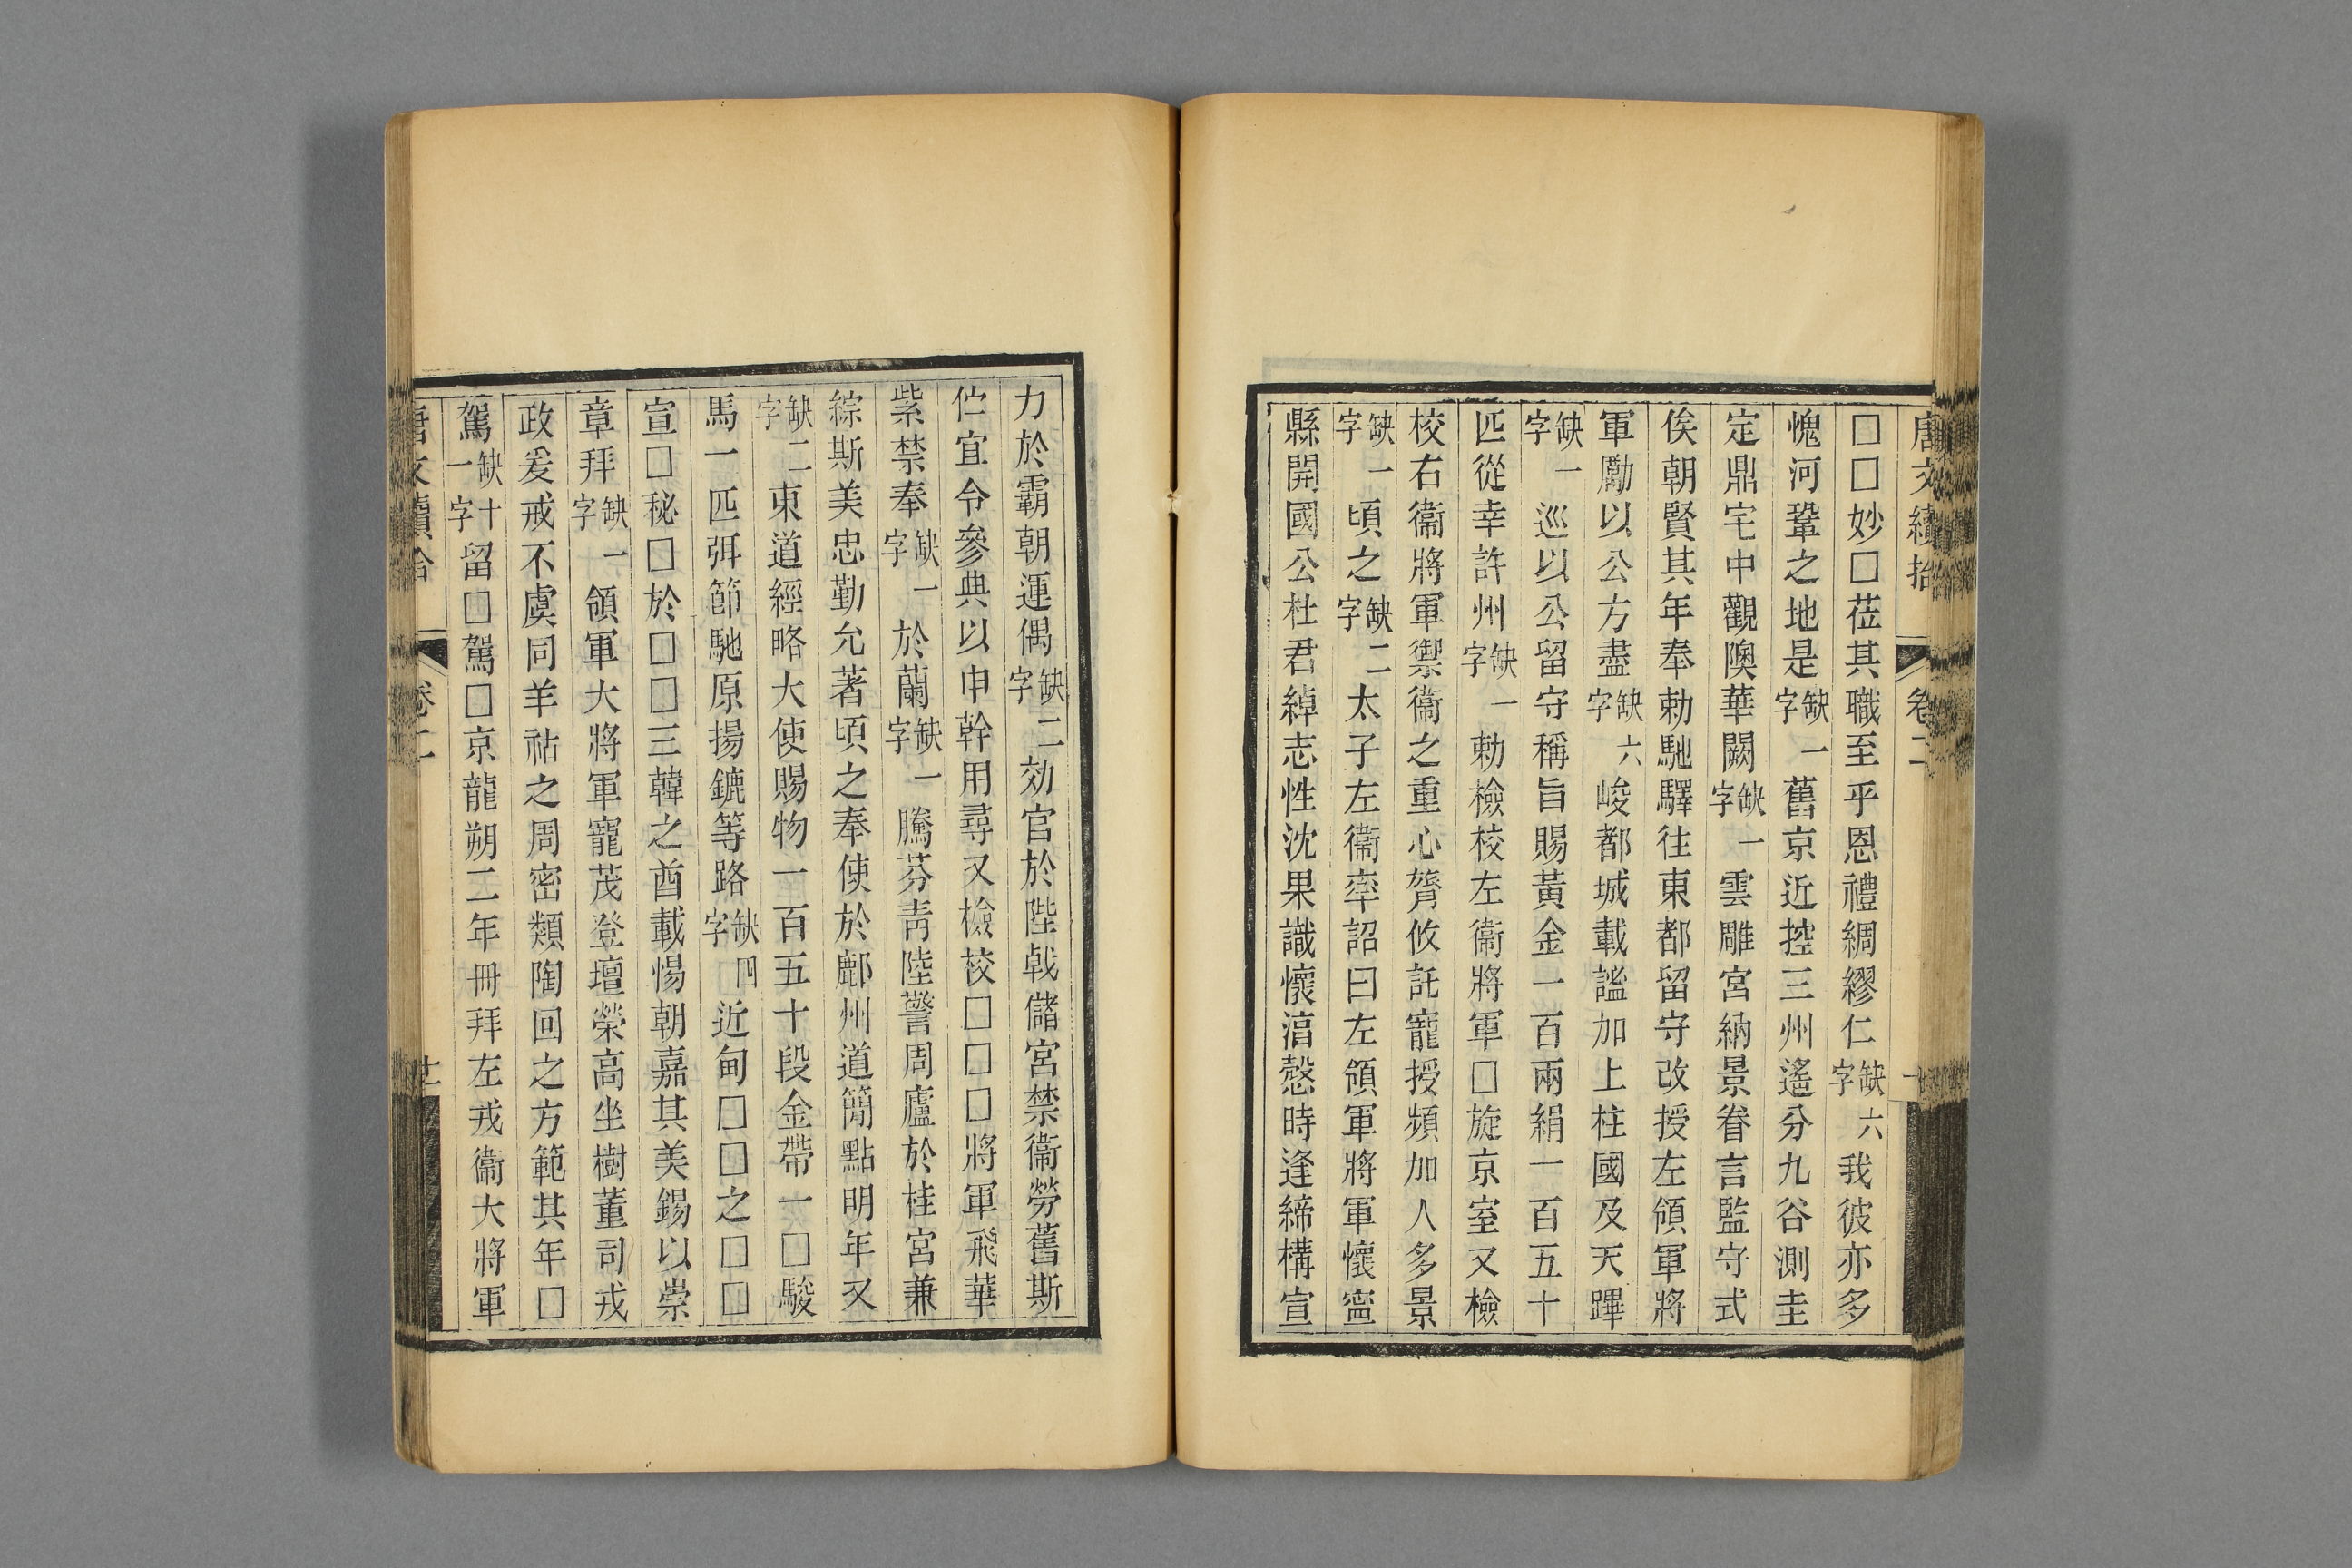 唐文續拾 卷二 十
□□妙□莅其職至乎恩禮綢繆仁缺六字我彼亦多
愧河鞏之地是缺一字舊京近控三州遙分九谷測圭
定鼎宅中觀隩華闕缺一字雲雕宮納景眷言監守式
俟朝賢其年奉勅馳驛往東都留守改授左領軍將
軍勵以公方盡缺六字峻都城載謐加上柱國及天蹕
缺一字巡以公留守稱旨賜黃金一百兩絹一百五十
匹從幸許州缺一字勅檢校左衞將軍□旋京室又檢
校右衞將軍禦衞之重心膂攸託寵授頻加人多景
缺一字頃之缺二字太子左衞率詔曰左領軍將軍懷寧
縣開國公杜君綽志性沈果識懷淯愨時逢締構宣
力於霸朝運偶缺二字効官於陛戟儲宮禁衞勞舊斯
伫宜令參典以申幹用尋又檢校□□□將軍飛華
紫禁奉缺一字於蘭缺一字騰芬靑陸警周廬於桂宮兼
綜斯美忠勤允著頃之奉使於鄜州道簡點明年又
缺二字東道經略大使賜物一百五十段金帶一□駿
馬一匹弭節馳原揚鑣等路缺四字近甸□□之□□
宣□秘□於□□三韓之酋載惕朝嘉其美錫以崇
章拜缺一字領軍大將軍寵茂登壇榮高坐樹董司戎
政爰戒不虞同羊祜之周密類陶回之方範其年□
駕缺十一字留□駕□京龍朔二年冊拜左戎衞大將軍
唐文續拾 卷二 十一